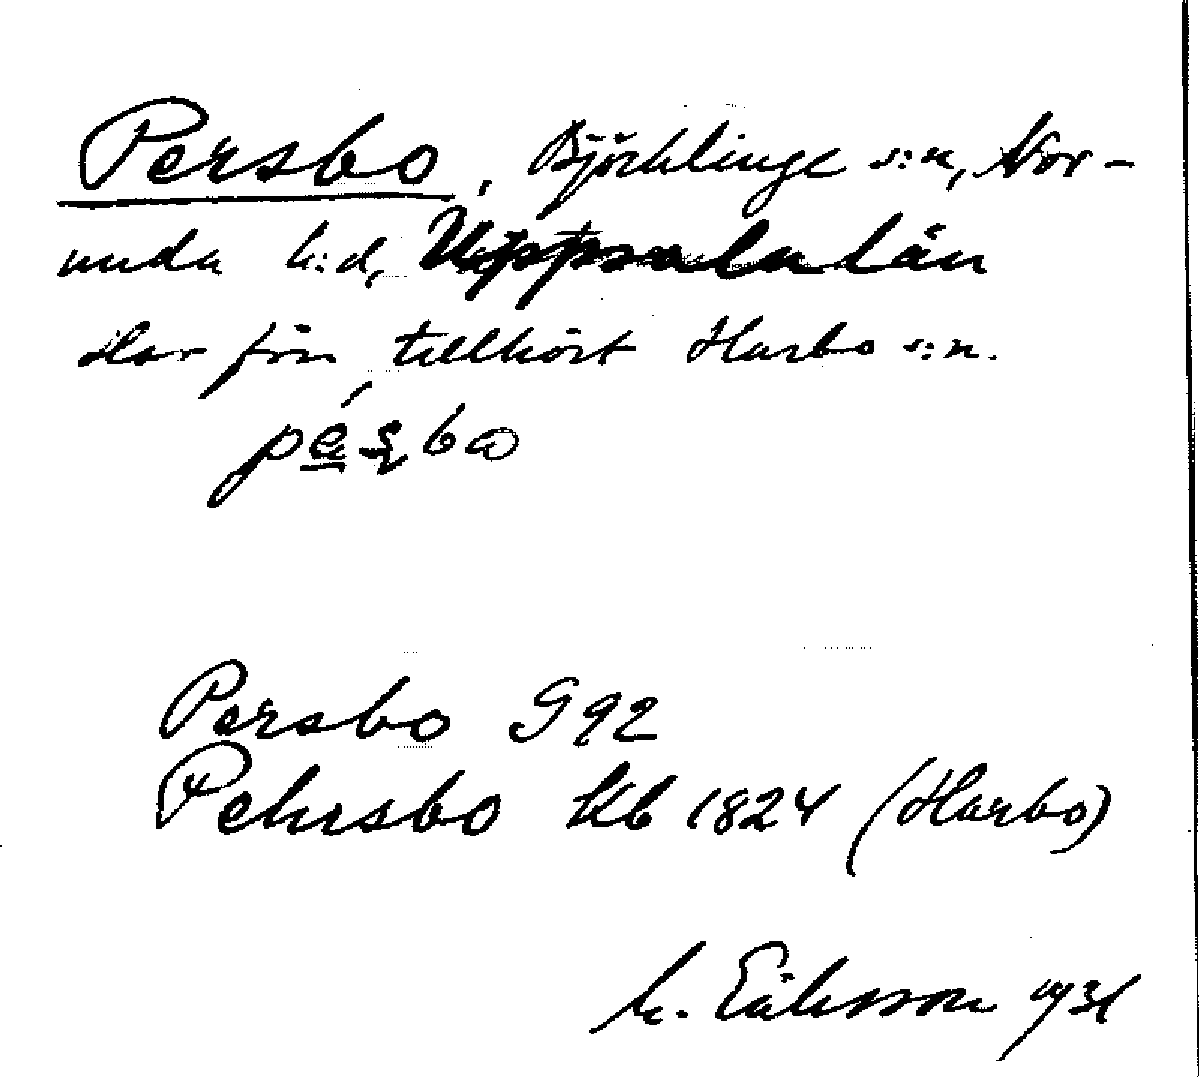 Persbo, Björklinge s:n, Nor-
unda h:d, Uppsala län
Har förr tillhört Harbo s:n.
Persbo G 92
Pehrsbo Kb 1824 (Harbo)
M. Eriksson 1931